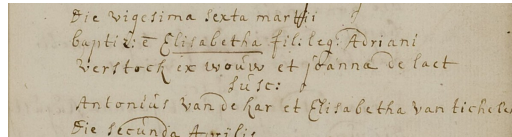 Die vigesima sexta martii
baptiz: ē Elisabetha fil: leg: Adriani
verstock ex wouw et joanna de laet
susc:
Antonius van de kar et Elisabetha van tichelen
Die secunda Aprilis